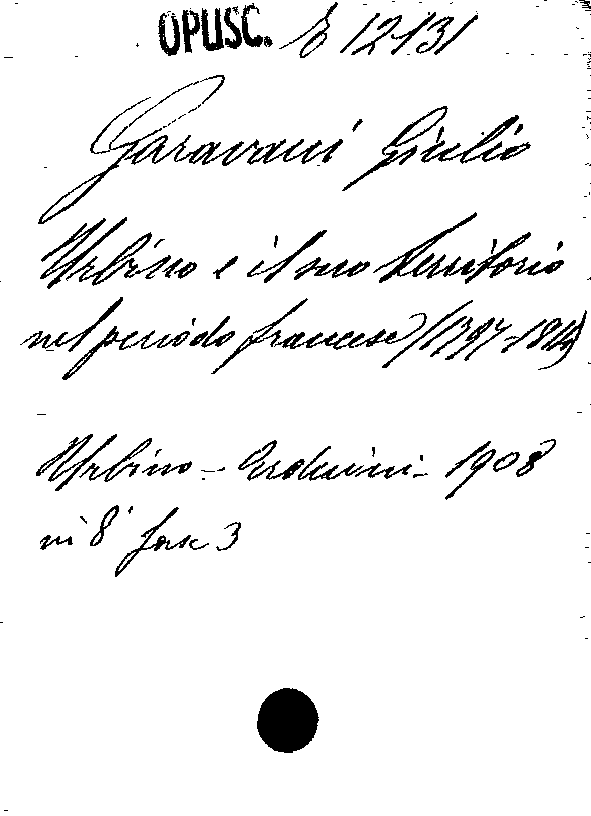 OPUSC. E 12131
Garavani Giulio
Urbino e il suo territorio
nel periodo francese (1797-1814)
Urbino - Arduini - 1908
in 8° fasc 3